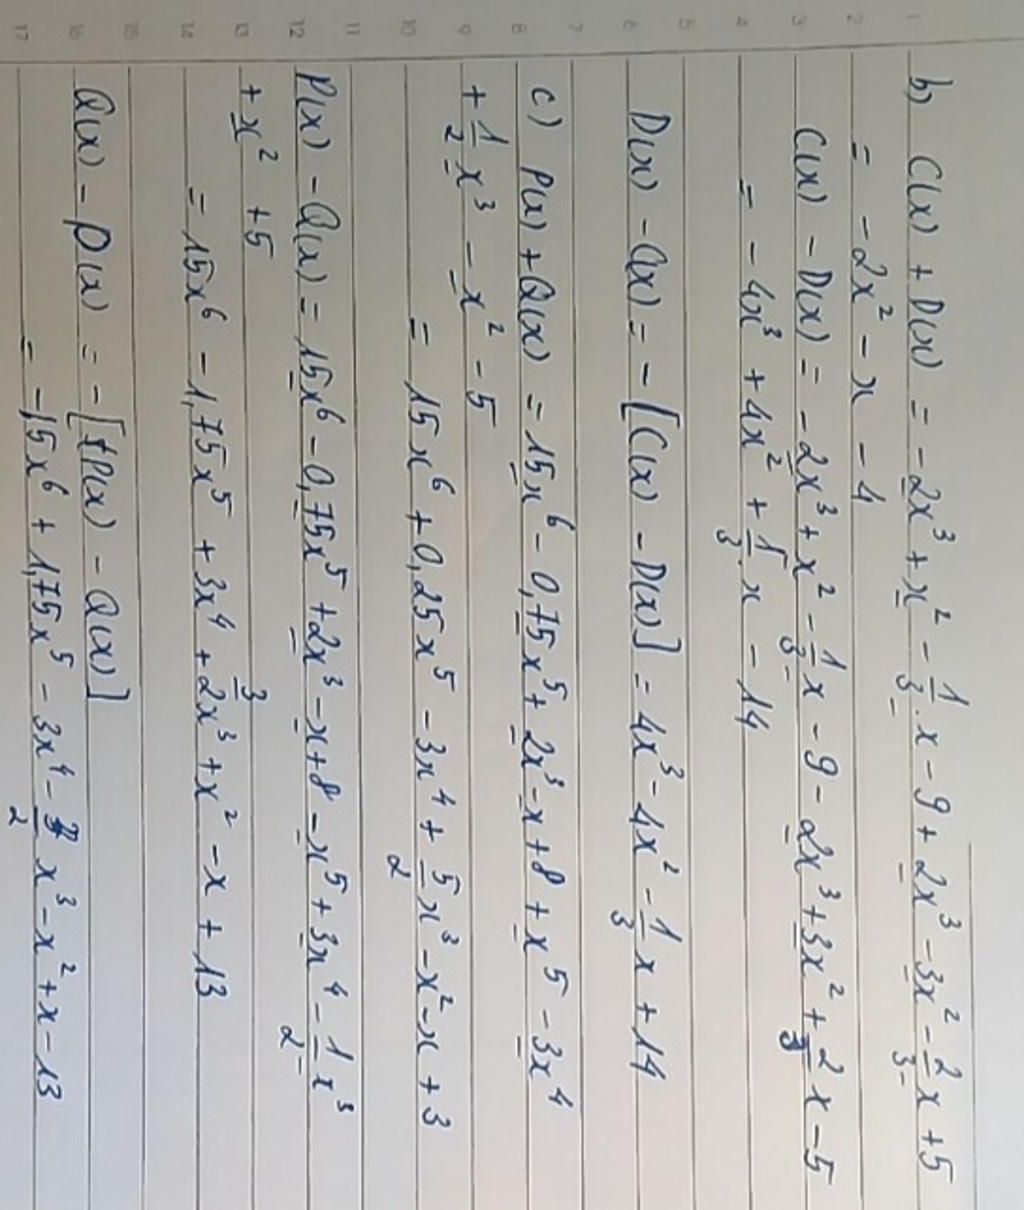 b) C(x) + D(x) = -2x³ + x² - 1/3.x - 9 + 2x³ - 3x² - 2/3x + 5
= -2x² - x - 4
C(x) - D(x) = -2x³ + x² - 1/3x - 9 - 2x³ + 3x² + 2/3x - 5
= -4x³ + 4x² + 1/3.x - 14
D(x) - C(x) = -[C(x) - D(x)] = 4x³ - 4x² - 1/3x + 14
c) P(x) + Q(x) = 15x⁶ - 0,75x⁵ + 2x³ - x + 8 + x⁵ - 3x⁴
+ 1/2x³ - x² - 5
= 15x⁶ + 0,25x⁵ - 3x⁴ + 5/2x³ - x² - x + 3
P(x) - Q(x) = 15x⁶ - 0,75x⁵ + 2x³ - x + 8 - x⁵ + 3x⁴ - 1/2x³
+ x² + 5
= 15x⁶ - 1,75x⁵ + 3x⁴ + 3/2x³ + x² - x + 13
Q(x) - P(x) = -[P(x) - Q(x)]
= -15x⁶ + 1,75x⁵ - 3x⁴ - 3/2x³ - x² + x - 13
1
2
3
4
5
6
7
8
9
10
11
12
13
14
15
16
17